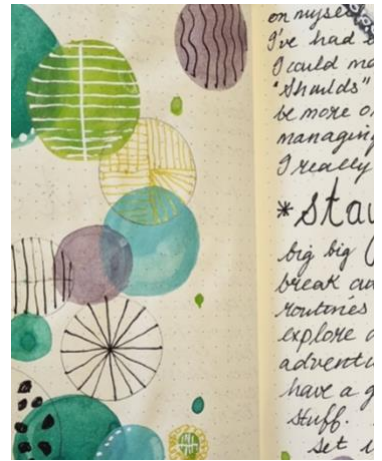 on myse
I've had
I could m
"Shoulds"
be more o
managing
I really
*sta
big big
break ou
routines
explore a
adventu
have a g
stuff.
set u